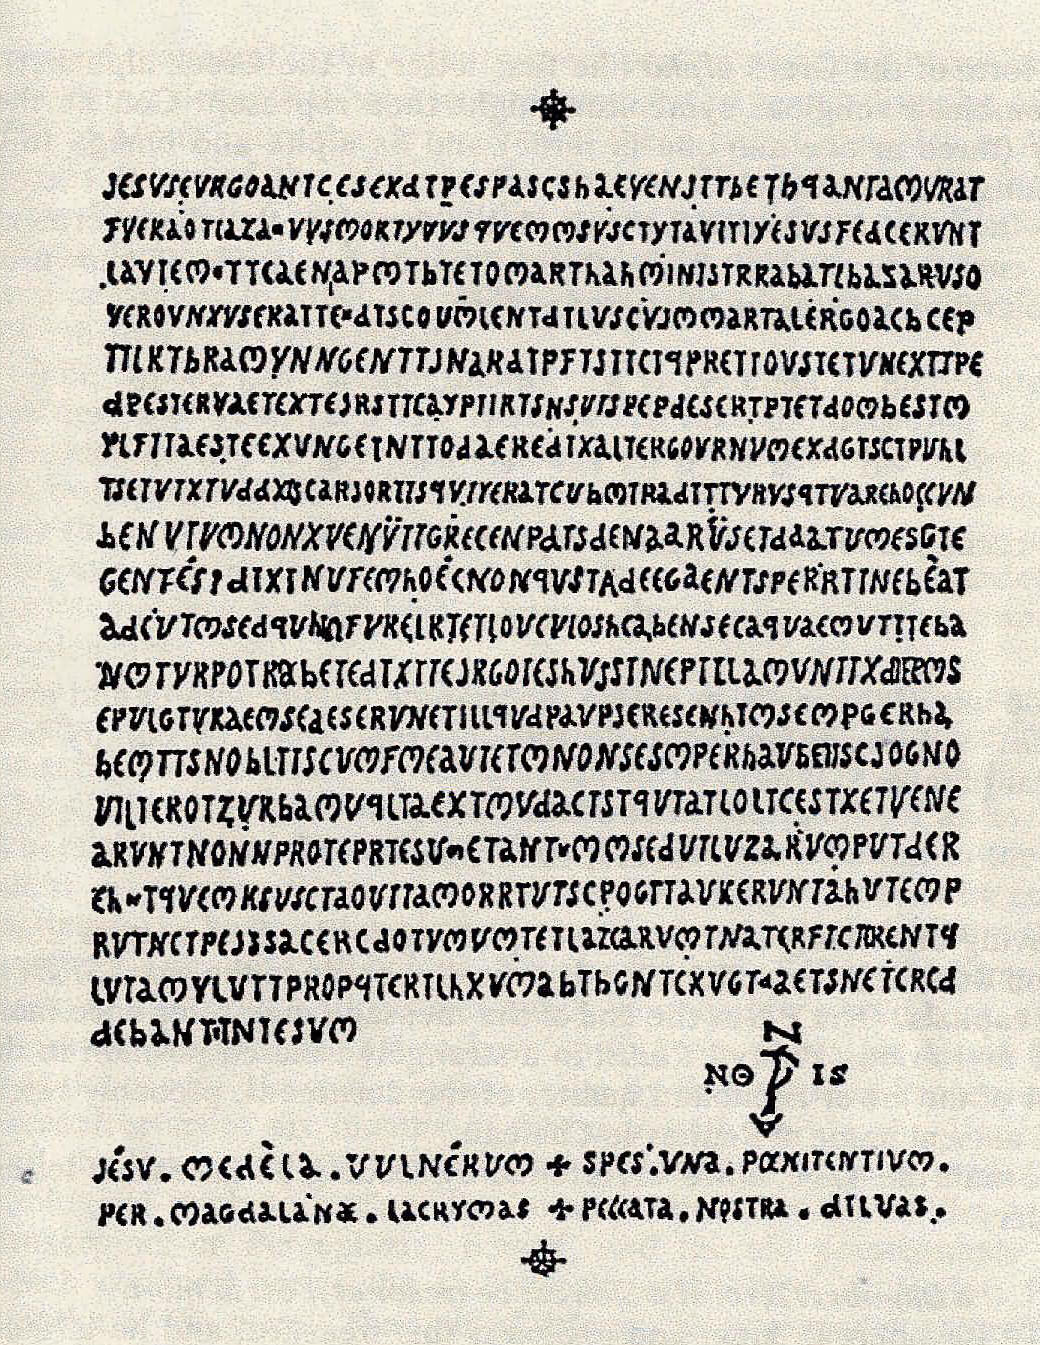 JESVSEVRGOANTCESEXATPESPASCShAEVENJTTbETh9ANIAMVRAT
FVERAOTIAZA=VVJMORTYVVS9VEMMSVSCTYTAVITIYESVSFEACERVNT
LAVIEM=TTCAENAPMTbTETOMARThAhMINISTRRAbATLbAZARVSO
VEROVNXVSERATTE=dTSCOUMLENTATLVSCVJMMARTALERGOACbCEP
TTLKTbRAMYNNGENTTJNARATPFTSTTCT9PRETTOVSTETVNEXTTPE
dPESTERVAETEXTEJRSTTCAYPIIRTSNSVISPEPdESERTPTETdOMbESTM
PLFITAESTEEXVNGETNTTOdAEREdIXALTERGOVRNVMEXdGTSCTPVhL
TSETVTXTVddXJSCARJORTIS9VIYERATCVbMTRAdTTTVRVS9TVAREhOCCVN
bENVIVMNONXVENVTTGRECENPATSdENAARVSETdAATVMESGTE
GENTES?dTXTNVFEMhOECNON9VSTAdEEGAENTSPERRTINEbEAT
AdEVTMSEd9VNNFVRELRTETLOVCVIOShCAbENSECA9VAEMVTTTEbA
NMTVRPOTRAbETEdTXTTEJRGOTESHVJSTNEPTLLAMVNTTXdIEPMS
EPVLGTVRAEMSEAESERVNETILL9VdPAVPSERESENhTMSEMPGERhA
bEMTTSNObLTTSCVMFMEAVTETMNONSESMPERhAVbEIISCJOGNO
VILIEROTZVRbAMV9LTAEXTMVdACTST9VTATLOLTCESTXETVENE
ARVNTNONNPROTEPRTESU=ETANT=MMSEdVTLVZARVMPVTdER
Eh=T9VEMKSVSCTAOVITAMORRTVTSCPOGTTAVKERVNTAhVTEMP
RVTNCTPEJSSACERCdOTVMVMTETLAZCARVMTNATCRFICTRENT9
LVTAMYLVTTPROP9TERTLhXVMAbTbGNTCXVGT=AETSNETCRCd
dEbANTITNTESVM
N
NΘ P IS
JÉSV. MEdÈLA. VVLNÉRVM + SPES.VNA. PŒNITENTIVM.
PER. MAGdALANÆ. LACRYMAS + PECCATA. NOSTRA. dILVAS.